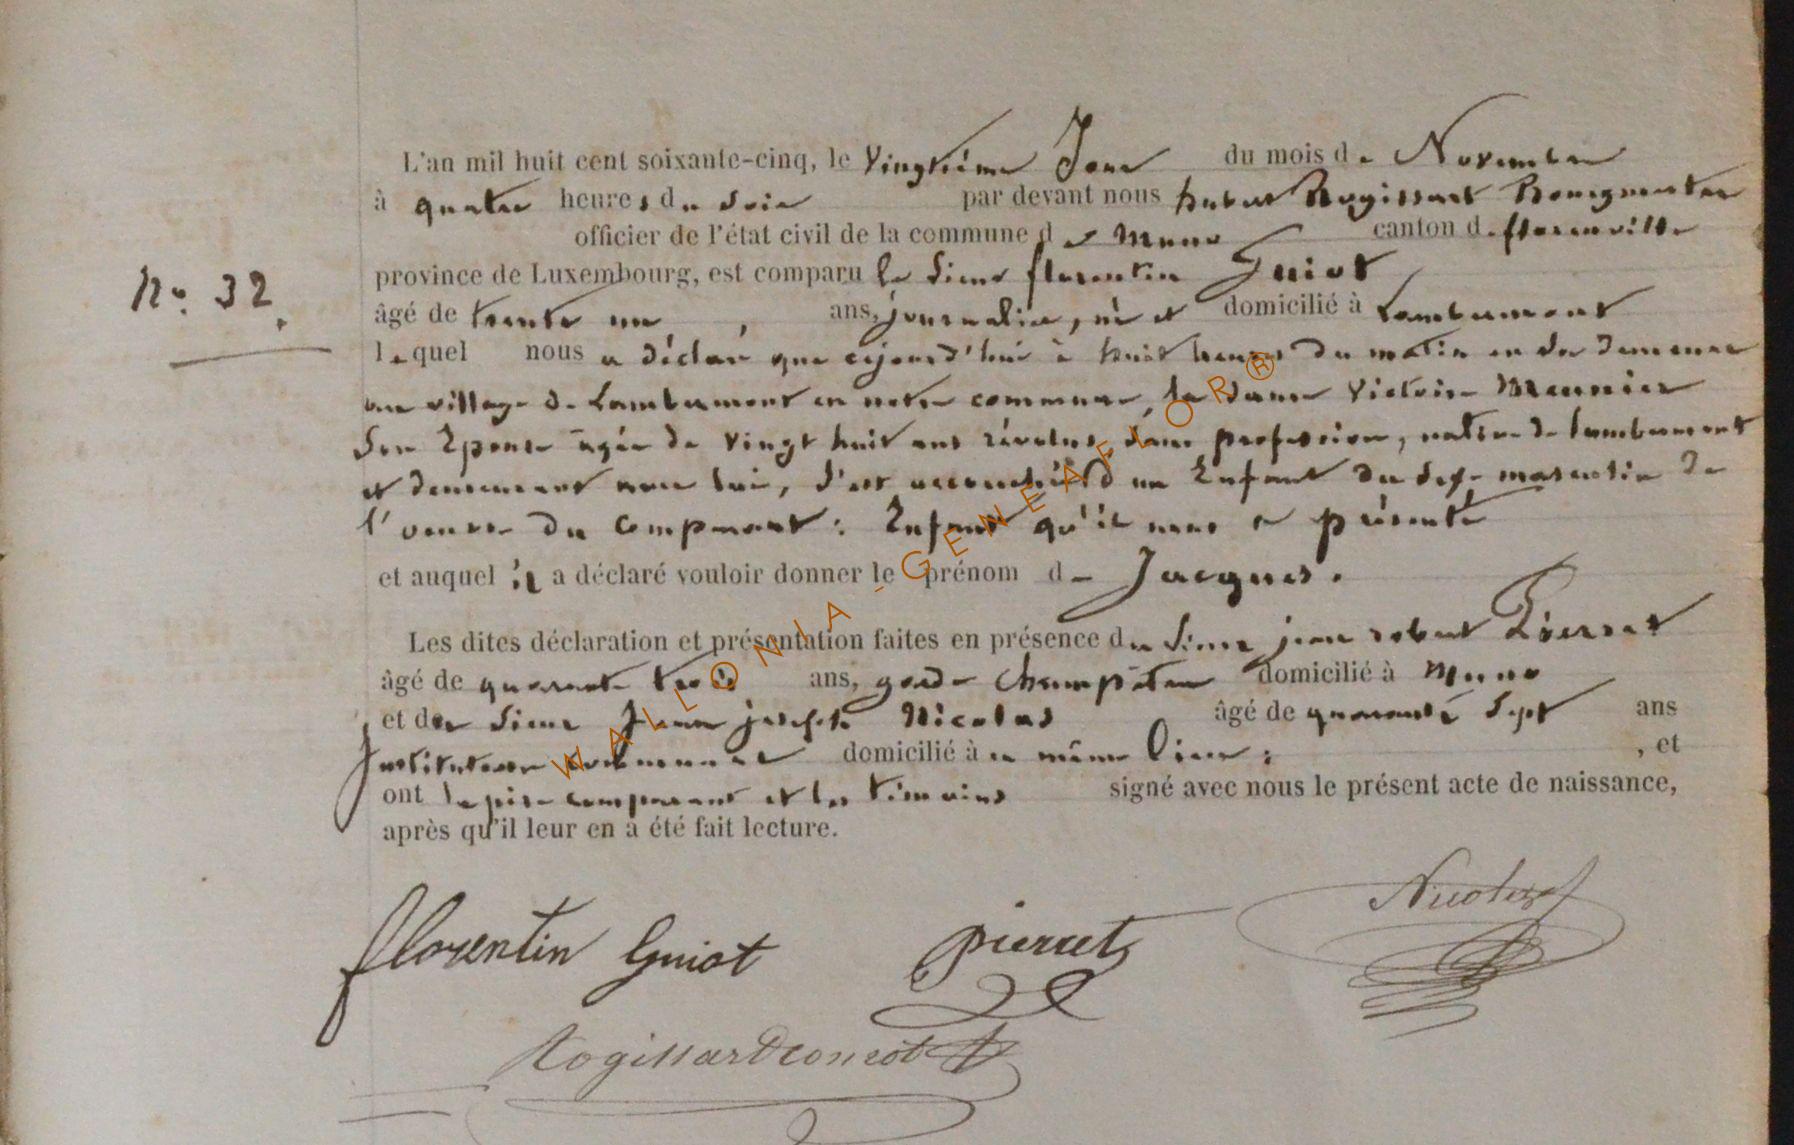 L'an mil huit cent soixante-cinq, le Vingtième Jour du mois de Novembre
à quatre heures du soir par devant nous hubert Rogissart Bourgmestre
officier de l'état civil de la commune de Muno canton de florenville
N° 32.
province de Luxembourg, est comparu le sieur florentin Guiot
âgé de trente un, ans, journalier, né et domicilié à Lambermont
lequel nous a déclaré que cejourd'hui à huit heures du matin en sa demeure
au village de Lambermont en notre commune, la dame Victoire Meunier
son Epouse âgée de vingt huit ans révolus, sans profession, native de lambermont
et demeurant avec lui, s'est accouchée d'un Enfant du sexe masculin de
l'oeuvre du comparant : Enfant qu'il nous a présenté
et auquel il a déclaré vouloir donner le prénom de Jacques.
Les dites déclaration et présentation faites en présence du sieur jean robert Pierret
âgé de quarante trois ans, garde champêtre domicilié à Muno
et du sieur Jean joseph Nicolas âgé de quarante sept ans
Instituteur communal domicilié à ce même lieu ; , et
ont le père comparant et les témoins signé avec nous le présent acte de naissance,
après qu'il leur en a été fait lecture.
florentin Guiot pierret Nicolas
Rogissart
WALLONIA - GENEAFLOR®